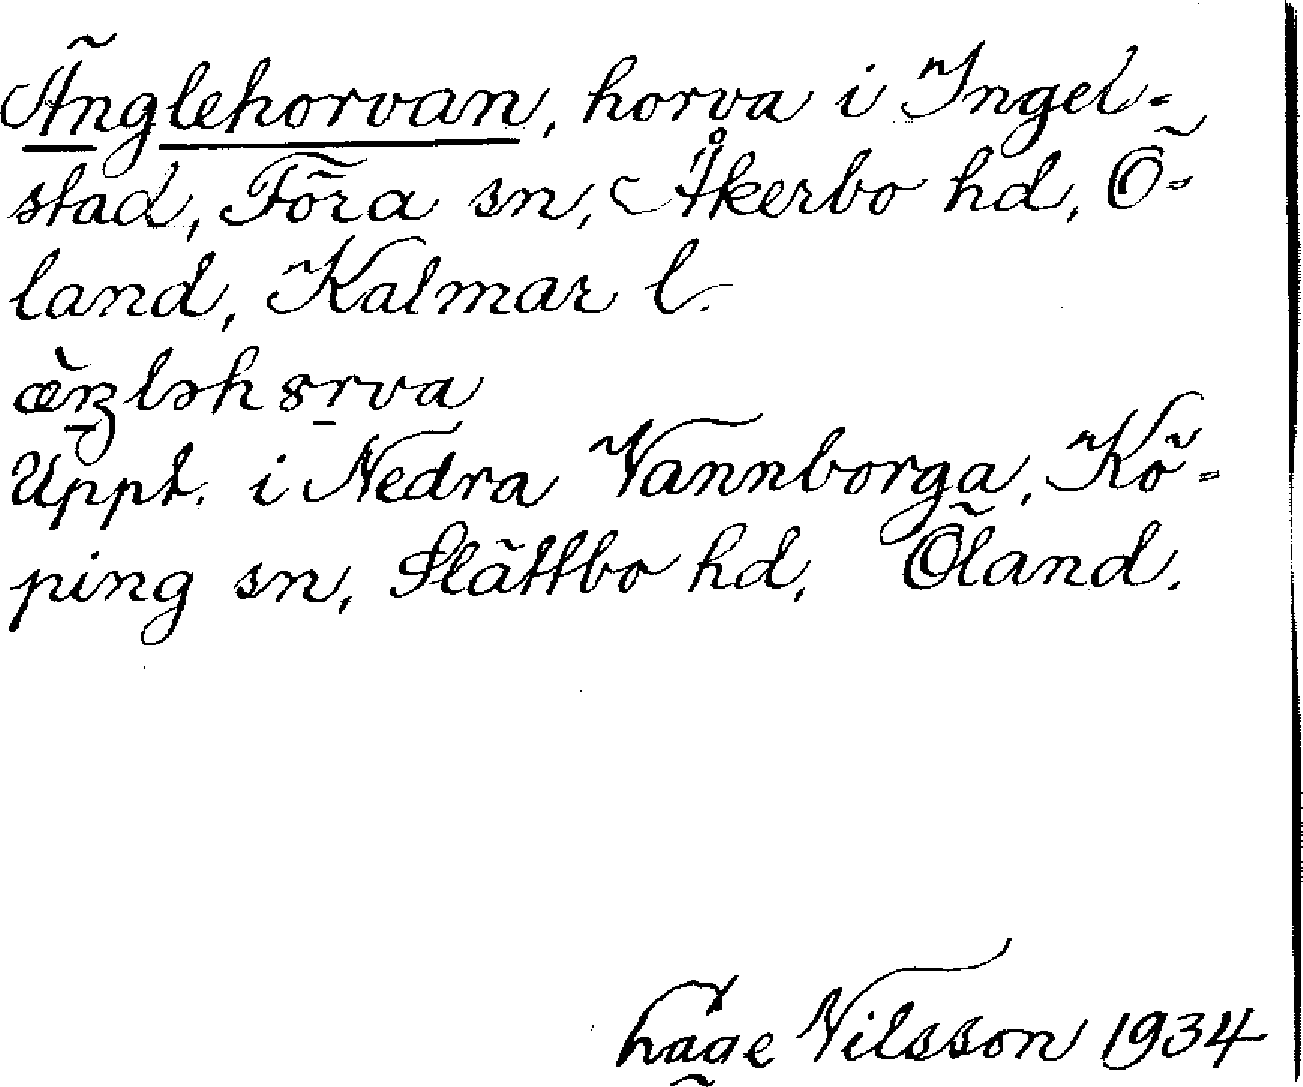 Änglehorvan, horva i Ingel-
stad, Föra sn, Åkerbo hd, Ö-
land, Kalmar l.
Uppt. i Nedra Vannborga, Kö-
ping sn, Slättbo hd, Öland.
Nilsson 1934